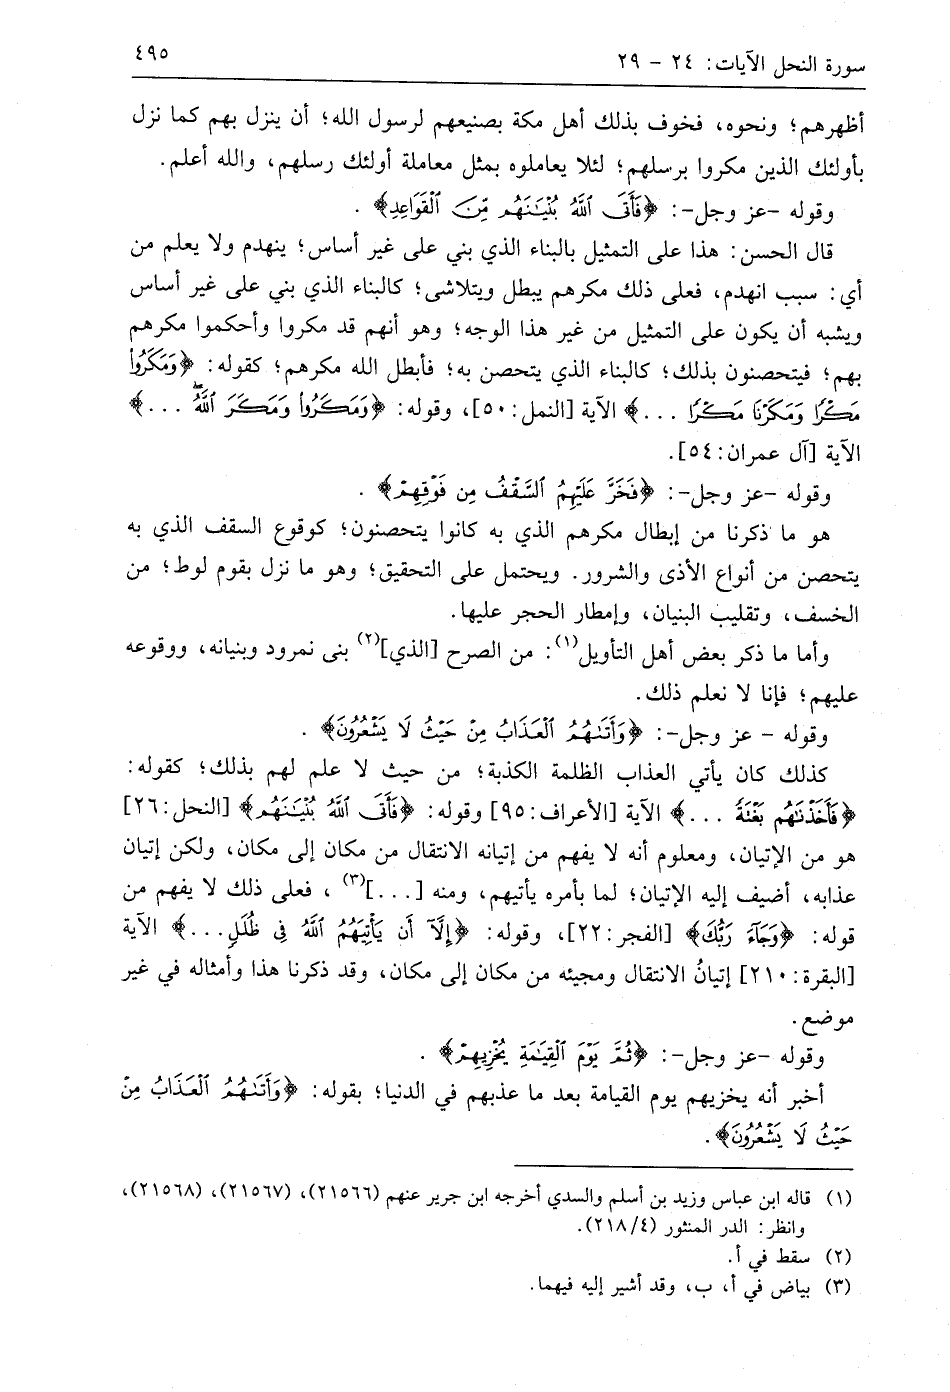 سورة النحل الآيات: ٢٤ - ٢٩ ٤٩٥
أظهرهم؛ ونحوه، فخوف بذلك أهل مكة بصنيعهم لرسول الله؛ أن ينزل بهم كما نزل
بأولئك الذين مكروا برسلهم؛ لئلا يعاملوه بمثل معاملة أولئك رسلهم، والله أعلم.
وقوله -عز وجل-: ﴿فَأَتَى ٱللَّهُ بُنْيَـٰنَهُم مِّنَ ٱلْقَوَاعِدِ﴾ .
قال الحسن: هذا على التمثيل بالبناء الذي بني على غير أساس؛ ينهدم ولا يعلم من
أي: سبب انهدم، فعلى ذلك مكرهم يبطل ويتلاشى؛ كالبناء الذي بني على غير أساس
ويشبه أن يكون على التمثيل من غير هذا الوجه؛ وهو أنهم قد مكروا وأحكموا مكرهم
بهم؛ فيتحصنون بذلك؛ كالبناء الذي يتحصن به؛ فأبطل الله مكرهم؛ كقوله: ﴿وَمَكَرُواْ
مَكْرًا وَمَكَرْنَا مَكْرًا ...﴾ الآية [النمل: ٥٠]، وقوله: ﴿وَمَكَرُواْ وَمَكَرَ ٱللَّهُۖ ...﴾
الآية [آل عمران: ٥٤].
وقوله -عز وجل-: ﴿فَخَرَّ عَلَيْهِمُ ٱلسَّقْفُ مِن فَوْقِهِمْ﴾ .
هو ما ذكرنا من إبطال مكرهم الذي به كانوا يتحصنون؛ كوقوع السقف الذي به
يتحصن من أنواع الأذى والشرور. ويحتمل على التحقيق؛ وهو ما نزل بقوم لوط؛ من
الخسف، وتقليب البنيان، وإمطار الحجر عليها.
وأما ما ذكر بعض أهل التأويل(١): من الصرح [الذي](٢) بنى نمرود وبنيانه، ووقوعه
عليهم؛ فإنا لا نعلم ذلك.
وقوله - عز وجل-: ﴿وَأَتَىٰهُمُ ٱلْعَذَابُ مِنْ حَيْثُ لَا يَشْعُرُونَ﴾ .
كذلك كان يأتي العذاب الظلمة الكذبة؛ من حيث لا علم لهم بذلك؛ كقوله:
﴿فَأَخَذْنَـٰهُم بَغْتَةً ...﴾ الآية [الأعراف: ٩٥] وقوله: ﴿فَأَتَى ٱللَّهُ بُنْيَـٰنَهُم﴾ [النحل: ٢٦]
هو من الإتيان، ومعلوم أنه لا يفهم من إتيانه الانتقال من مكان إلى مكان، ولكن إتيان
عذابه، أضيف إليه الإتيان؛ لما بأمره يأتيهم، ومنه [...](٣) ، فعلى ذلك لا يفهم من
قوله: ﴿وَجَآءَ رَبُّكَ﴾ [الفجر: ٢٢]، وقوله: ﴿إِلَّآ أَن يَأْتِيَهُمُ ٱللَّهُ فِى ظُلَلٍ...﴾ الآية
[البقرة: ٢١٠] إتيانُ الانتقال ومجيئه من مكان إلى مكان، وقد ذكرنا هذا وأمثاله في غير
موضع.
وقوله -عز وجل-: ﴿ثُمَّ يَوْمَ ٱلْقِيَـٰمَةِ يُخْزِيهِمْ﴾ .
أخبر أنه يخزيهم يوم القيامة بعد ما عذبهم في الدنيا؛ بقوله: ﴿وَأَتَىٰهُمُ ٱلْعَذَابُ مِنْ
حَيْثُ لَا يَشْعُرُونَ﴾.
(١) قاله ابن عباس وزيد بن أسلم والسدي أخرجه ابن جرير عنهم (٢١٥٦٦)، (٢١٥٦٧)، (٢١٥٦٨)،
وانظر: الدر المنثور (٢١٨/٤).
(٢) سقط في أ.
(٣) بياض في أ، ب، وقد أشير إليه فيهما.